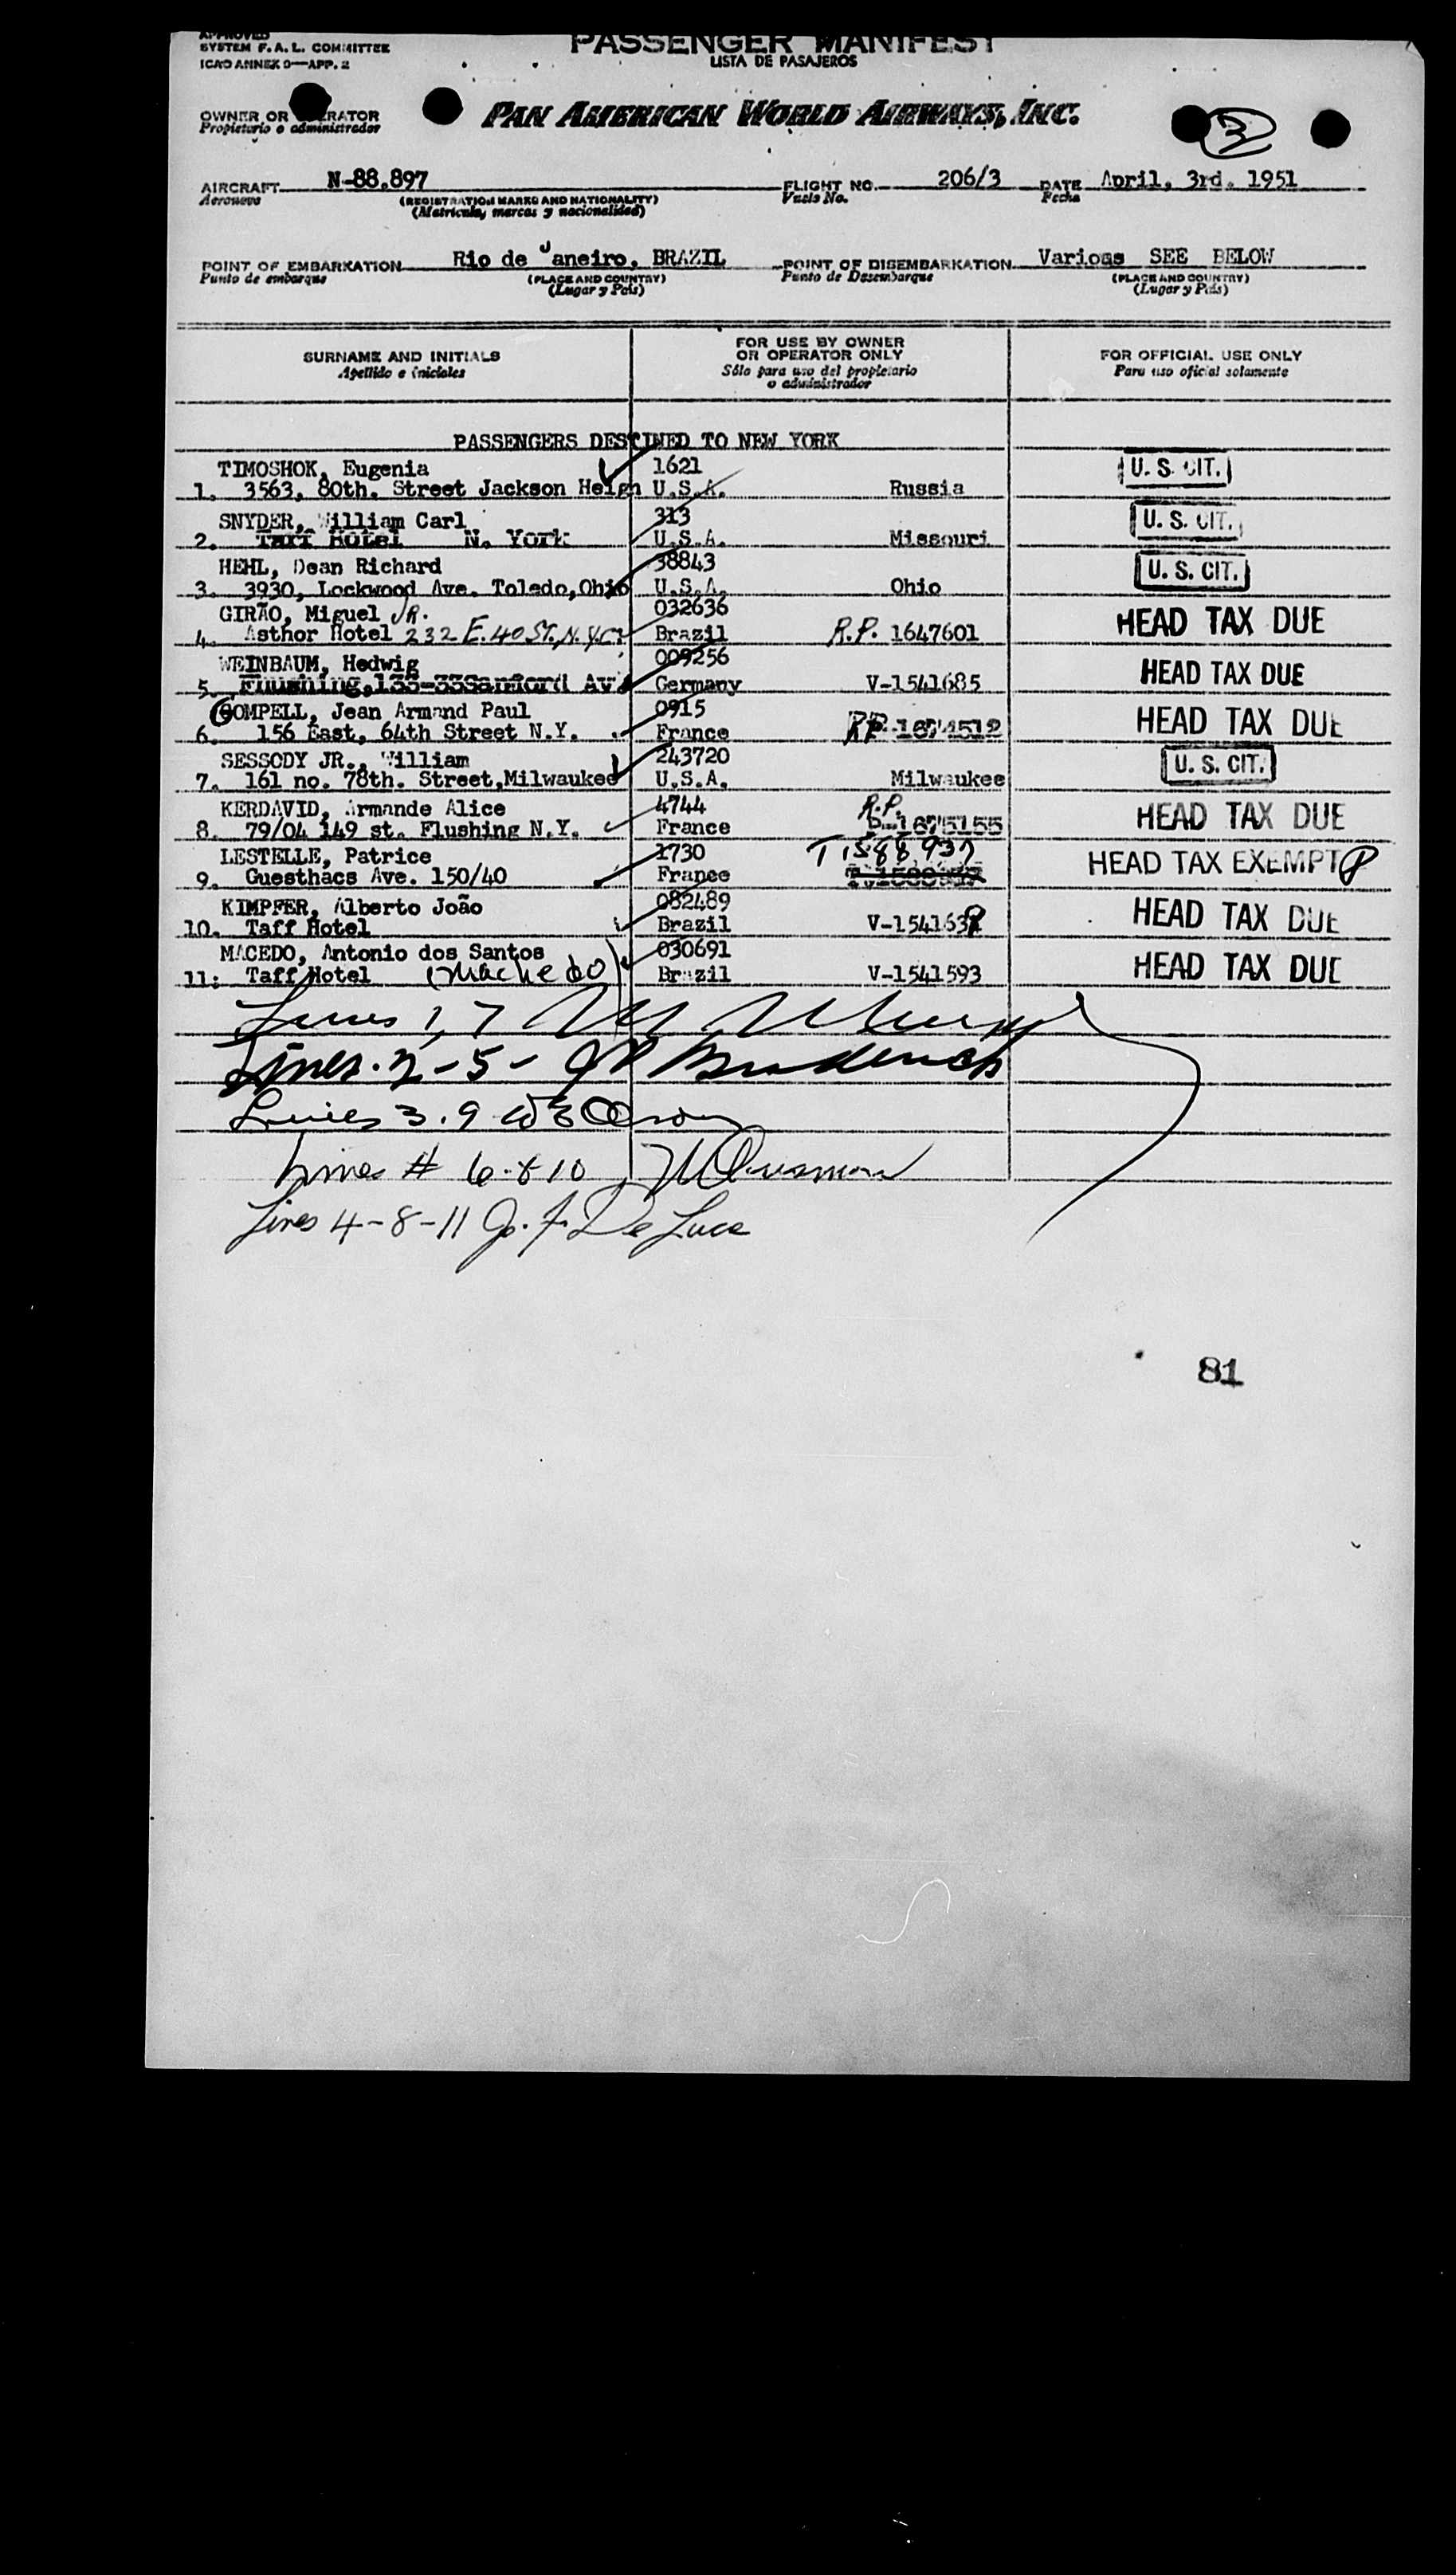 APPROVED
SYSTEM F.A.L. COMMITTEE
ICAO ANNEX 9—APP. 2
PASSENGER MANIFEST
LISTA DE PASAJEROS
OWNER OR RATOR
Propietario o administrador
PAN AMERICAN WORLD AIRWAYS, INC.
3
AIRCRAFT N-88.897 FLIGHT NO. 206/3 DATE April, 3rd. 1951
Aeronave (REGISTRATION MARKS AND NATIONALITY) Vuelo No. Fecha
(Matricula, marcas y nacionalidad)
POINT OF EMBARKATION Rio de Janeiro, BRAZIL POINT OF DISEMBARKATION Various SEE BELOW
Punto de embarque (PLACE AND COUNTRY) Punto de Desembarque (PLACE AND COUNTRY)
(Lugar y País) (Lugar y País)
SURNAME AND INITIALS FOR USE BY OWNER OR OPERATOR ONLY FOR OFFICIAL USE ONLY
Apellido e iniciales Sólo para uso del propietario o administrador Para uso oficial solamente
PASSENGERS DESTINED TO NEW YORK
TIMOSHOK, Eugenia 1621 U. S. CIT.
1. 3563, 80th. Street Jackson Heigh U.S.A. Russia
SNYDER, William Carl 313 U. S. CIT.
2. Taff Hotel N. York U.S.A. Missouri
HEHL, Dean Richard 38843 U. S. CIT.
3. 3930, Lockwood Ave. Toledo, Ohio U.S.A. Ohio
GIRÃO, Miguel JR. 032636 HEAD TAX DUE
4. Asthor Hotel 232 E. 40 ST. N.Y.C. Brazil R.P. 1647601
WEINBAUM, Hedwig 009256 HEAD TAX DUE
5. Flushing, 133-33Sanford Av. Germany V-1541685
GOMPELL, Jean Armand Paul 0915 HEAD TAX DUE
6. 156 East, 64th Street N.Y. France RP-1674512
SESSODY JR., William 243720 U. S. CIT.
7. 161 no. 78th. Street, Milwaukee U.S.A. Milwaukee
KERDAVID, Armande Alice 4744 R.P. HEAD TAX DUE
8. 79/04 149 st. Flushing N.Y. France 1675155
LESTELLE, Patrice 1730 T 1588937 HEAD TAX EXEMPT
9. Guesthacs Ave. 150/40 France
KIMPFER, Alberto João 082489 HEAD TAX DUE
10. Taff Hotel Brazil V-154163
MACEDO, Antonio dos Santos 030691 HEAD TAX DUE
11: Taff Hotel (Machedo) Brazil V-1541593
Lines 1, 7
Lines. 2-5-
Lines 3.9
Lines # 6-8 10
Lines 4-8-11 J. F. De Luca
81